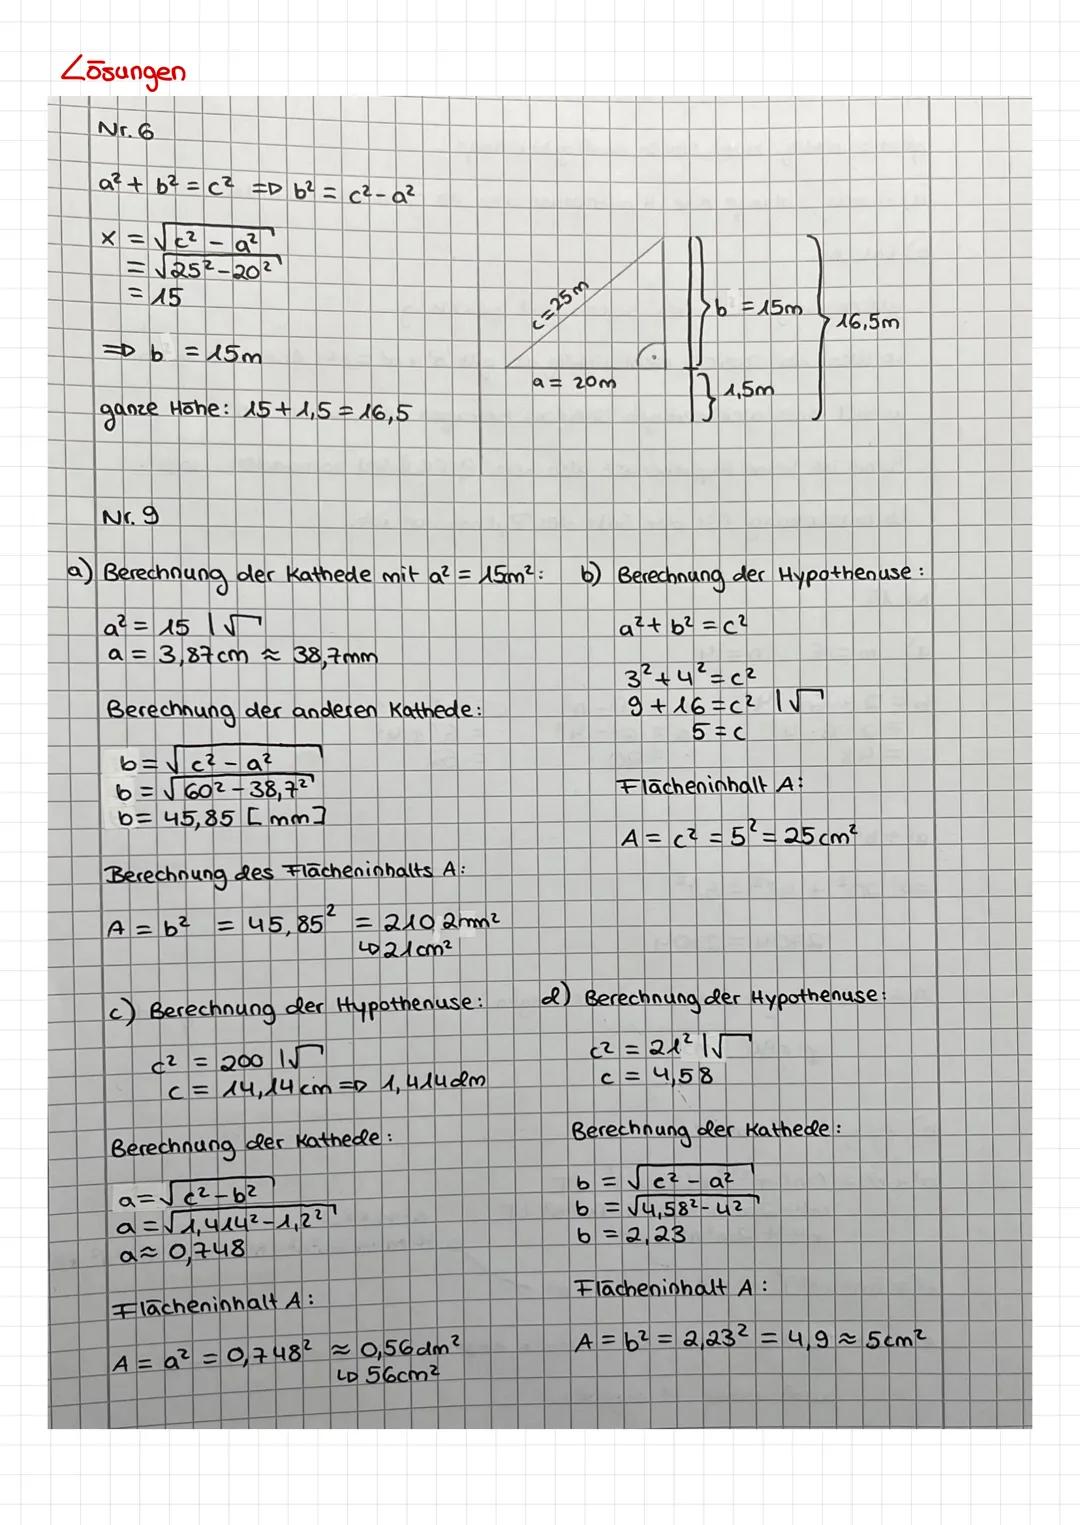 Lösungen
Nr. 6
a² + b² = c² => b² = c² - a²
x = √c² - a²
= √25² - 20²
= 15
=> b = 15m
ganze Höhe: 15 + 1,5 = 16,5
c = 25m
a = 20m
b = 15m
1,5m
16,5m
Nr. 9
a) Berechnung der Kathede mit a² = 15m²:
a² = 15 |√
a = 3,87cm ≈ 38,7mm
Berechnung der anderen Kathede:
b = √c² - a²
b = √60² - 38,7²
b = 45,85 [mm]
Berechnung des Flächeninhalts A:
A = b² = 45,85² = 210,2mm²
↳ 21cm²
b) Berechnung der Hypothenuse:
a² + b² = c²
3² + 4² = c²
9 + 16 = c² |√
5 = c
Flächeninhalt A:
A = c² = 5² = 25cm²
c) Berechnung der Hypothenuse:
c² = 200 |√
c = 14,14cm => 1,414dm
Berechnung der Kathede:
a = √c² - b²
a = √1,414² - 1,2²
a ≈ 0,748
Flächeninhalt A:
A = a² = 0,748² ≈ 0,56dm²
↳ 56cm²
d) Berechnung der Hypothenuse:
c² = 21² |√
c = 4,58
Berechnung der Kathede:
b = √c² - a²
b = √4,58² - 4²
b = 2,23
Flächeninhalt A:
A = b² = 2,23² = 4,9 ≈ 5cm²